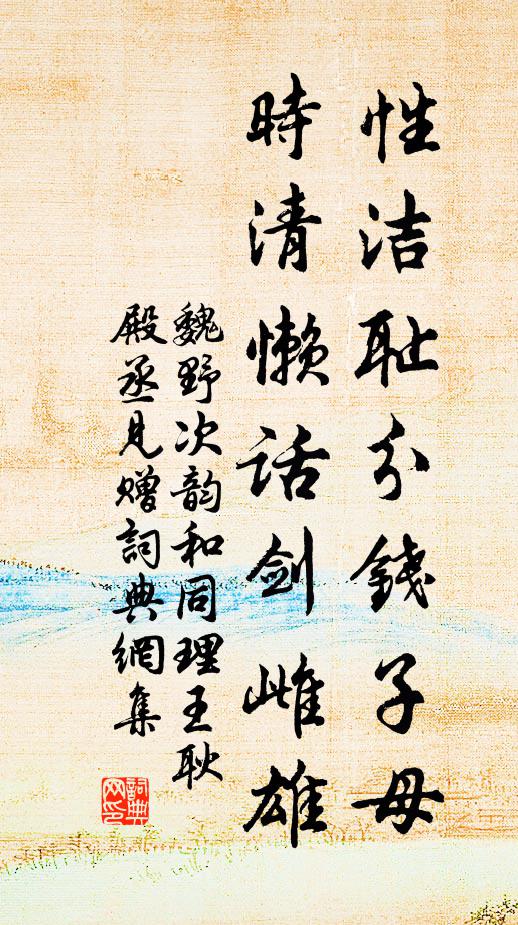 性洁耻分錢子母
時清懶话劍雌雄
魏野次韵和同理王耿
殿丞見赠詞典網集
詞典网印